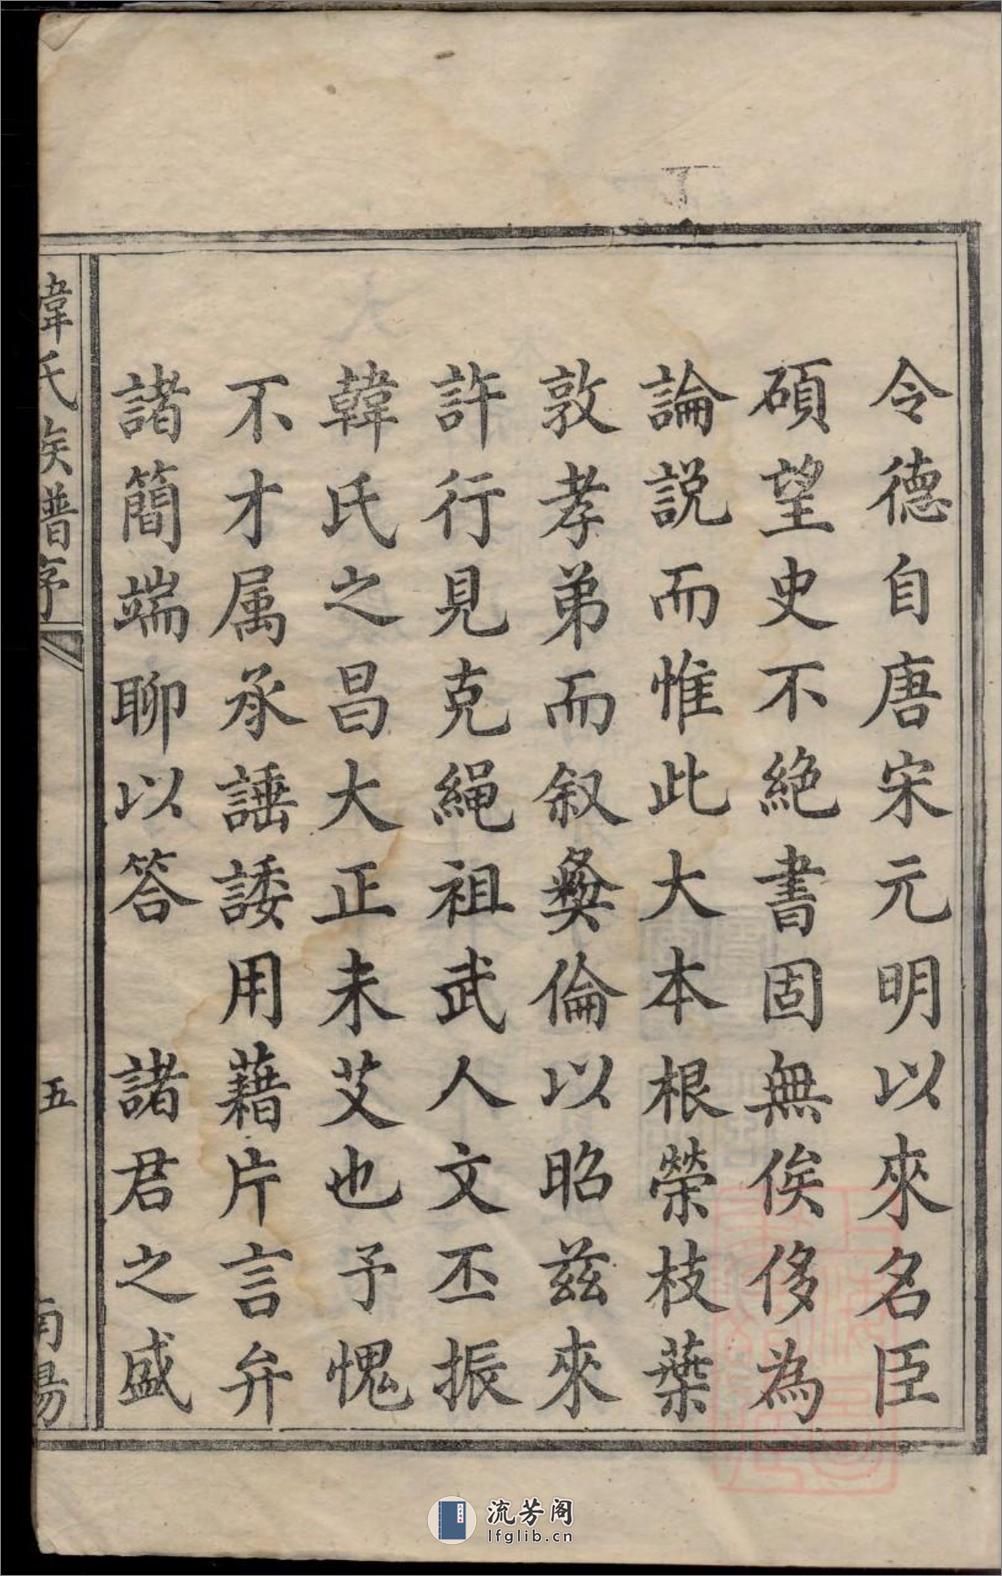 令德自唐宋元明以來名臣
碩望史不絕書固無俟侈為
論說而惟此大本根榮枝葉
敦孝弟而叙彝倫以昭茲來
許行見克繩祖武人文丕振
韓氏之昌大正未艾也予愧
不才属承諈諉用藉片言弁
諸簡端聊以答　諸君之盛
韓氏族譜序
五
南陽
流芳阁
lfglib.cn